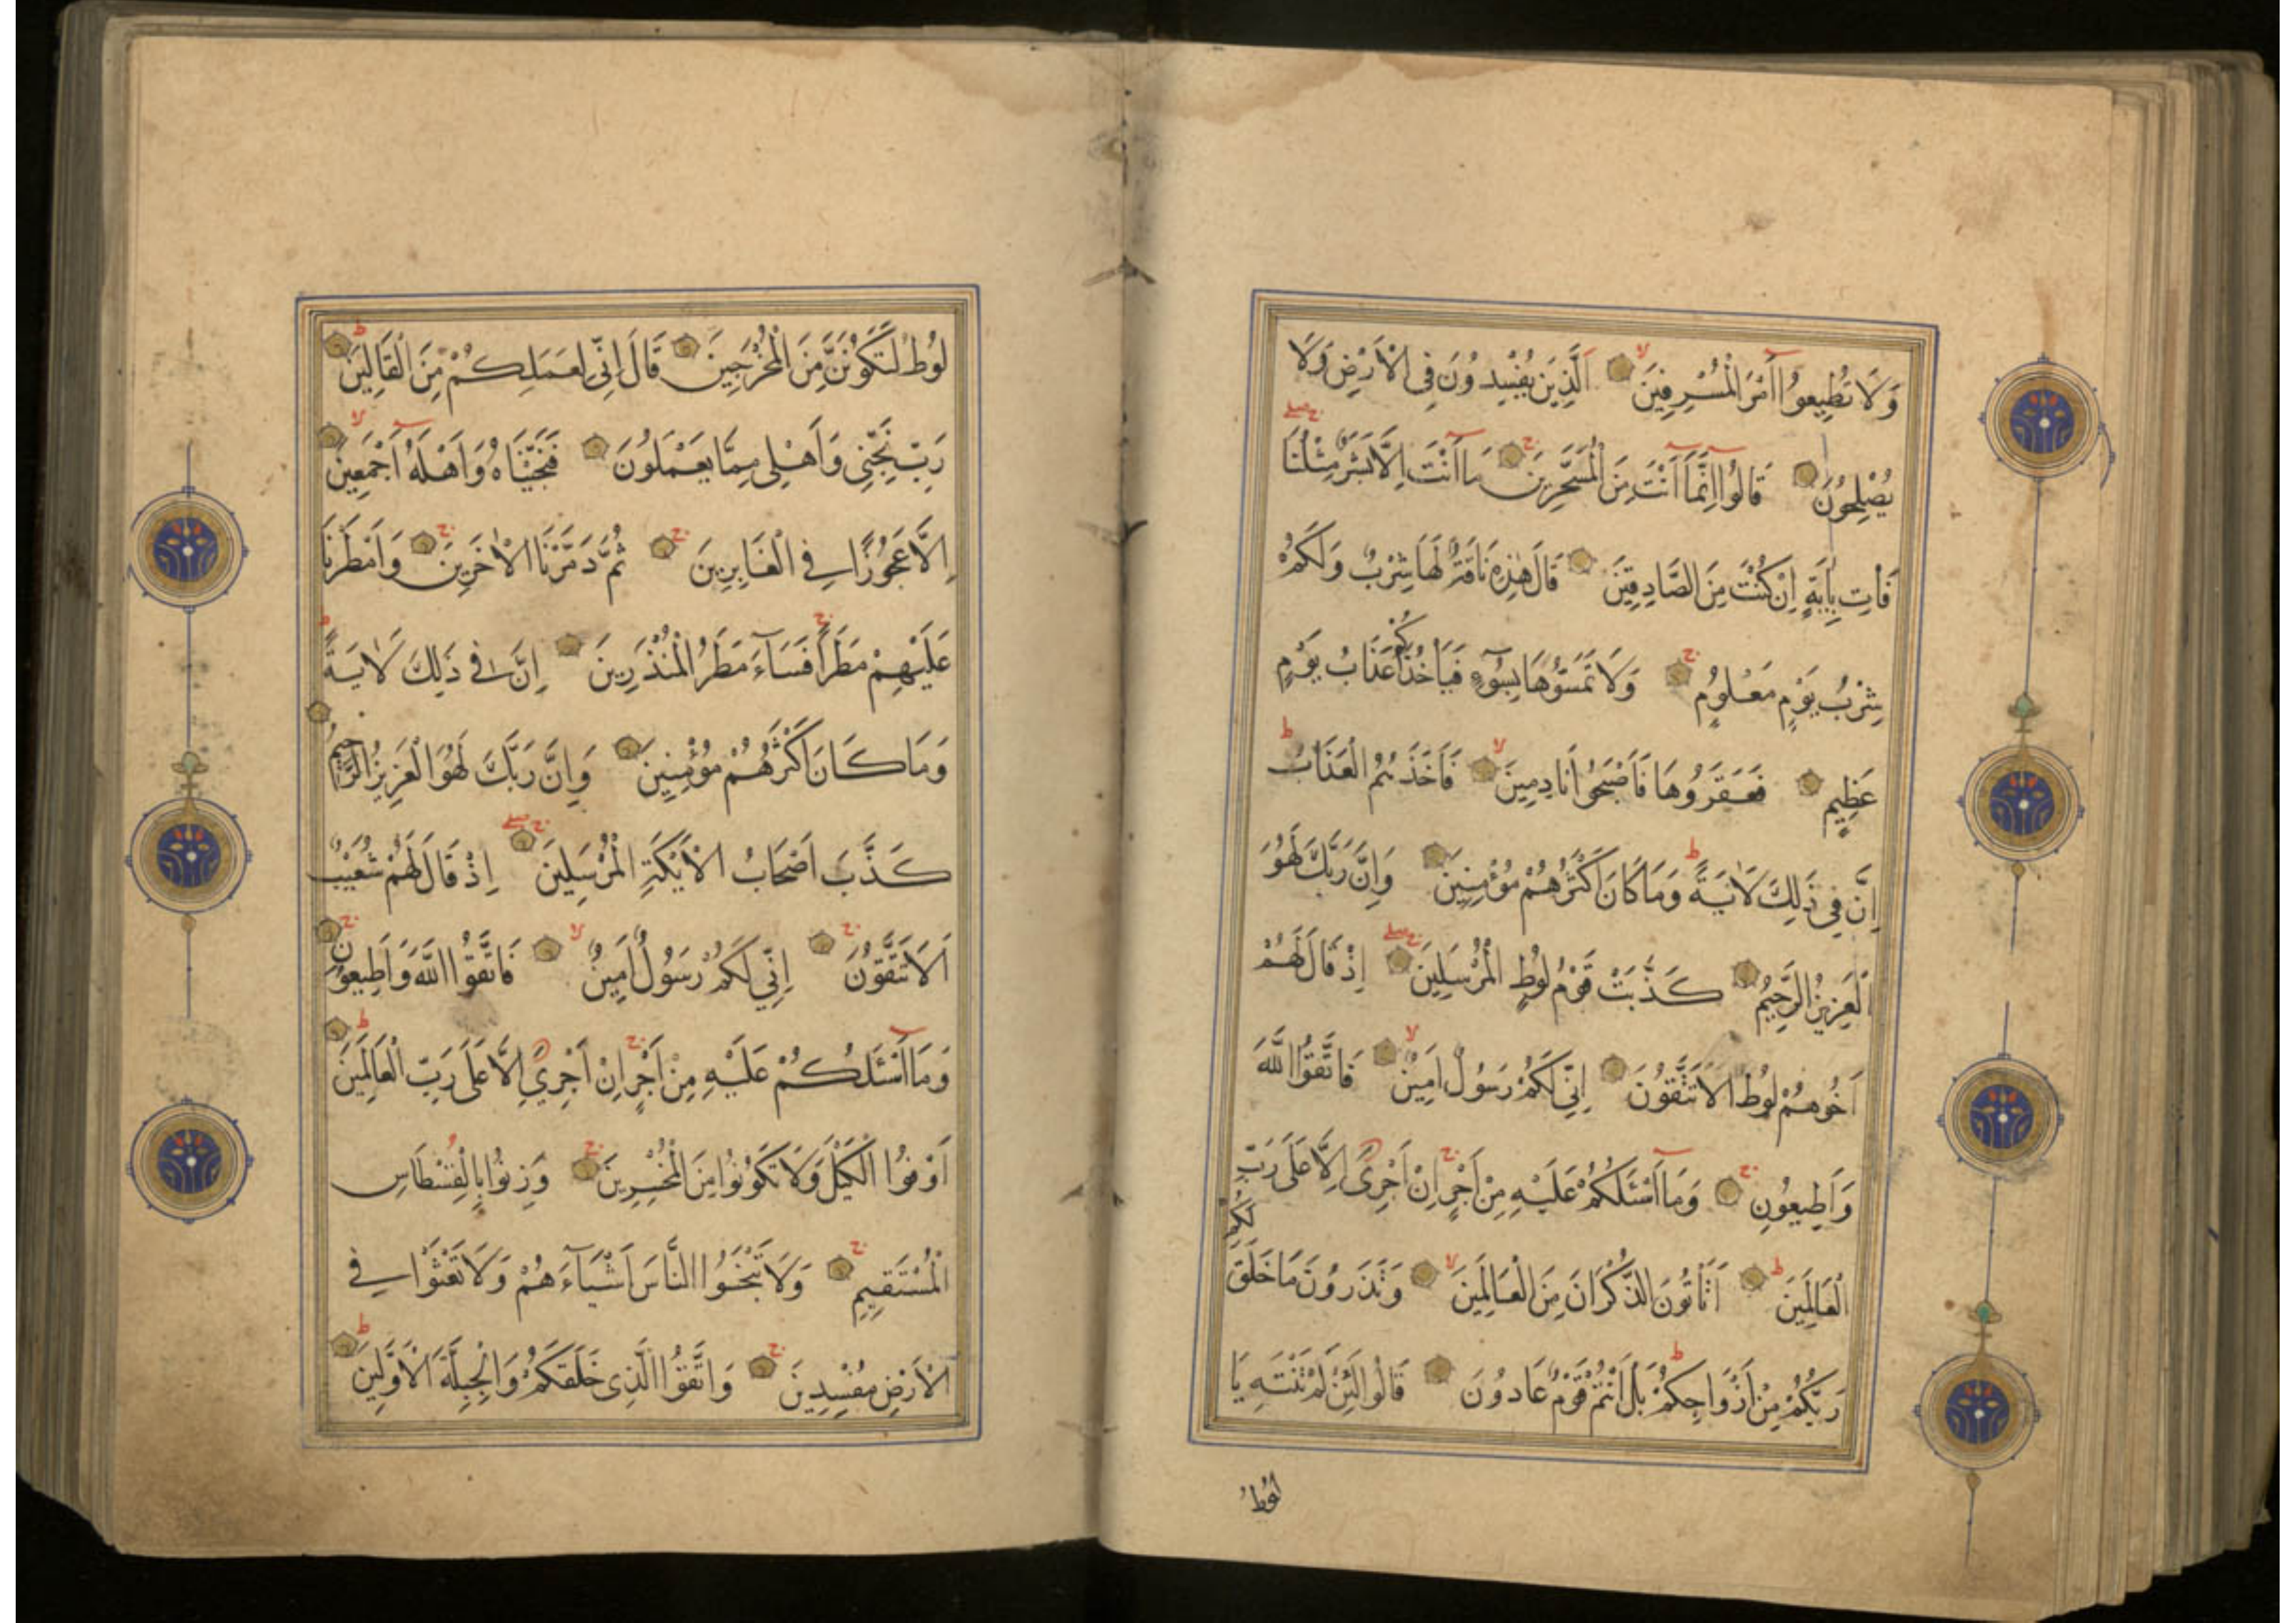 وَلَا تُطِيعُوا أَمْرَ الْمُسْرِفِينَ اَلَّذِينَ يُفْسِدُونَ فِي الْاَرْضِ وَلَا
يُصْلِحُونَ قَالُوا اِنَّمَا اَنْتَ مِنَ الْمُسَحَّرِينَ مَا اَنْتَ اِلَّا بَشَرٌ مِثْلُنَا
فَأْتِ بِاٰيَةٍ اِنْ كُنْتَ مِنَ الصَّادِقِينَ قَالَ هٰذِهِ نَاقَةٌ لَهَا شِرْبٌ وَلَكُمْ
شِرْبُ يَوْمٍ مَعْلُومٍ وَلَا تَمَسُّوهَا بِسُوٓءٍ فَيَأْخُذَكُمْ عَذَابُ يَوْمٍ
عَظِيمٍ فَعَقَرُوهَا فَاَصْبَحُوا نَادِمِينَ فَاَخَذَهُمُ الْعَذَابُ
اِنَّ فِي ذٰلِكَ لَاٰيَةً وَمَا كَانَ اَكْثَرُهُمْ مُؤْمِنِينَ وَاِنَّ رَبَّكَ لَهُوَ
الْعَزِيزُ الرَّحِيمُ كَذَّبَتْ قَوْمُ لُوطٍ الْمُرْسَلِينَ اِذْ قَالَ لَهُمْ
اَخُوهُمْ لُوطٌ اَلَا تَتَّقُونَ اِنِّي لَكُمْ رَسُولٌ اَمِينٌ فَاتَّقُوا اللّٰهَ
وَاَطِيعُونِ وَمَا اَسْئَلُكُمْ عَلَيْهِ مِنْ اَجْرٍ اِنْ اَجْرِيَ اِلَّا عَلٰى رَبِّ
الْعَالَمِينَ اَتَأْتُونَ الذُّكْرَانَ مِنَ الْعَالَمِينَ وَتَذَرُونَ مَا خَلَقَ لَكُمْ
رَبُّكُمْ مِنْ اَزْوَاجِكُمْ بَلْ اَنْتُمْ قَوْمٌ عَادُونَ قَالُوا لَئِنْ لَمْ تَنْتَهِ يَا
لُوطُ
لُوطُ لَتَكُونَنَّ مِنَ الْمُخْرَجِينَ قَالَ اِنِّي لِعَمَلِكُمْ مِنَ الْقَالِينَ
رَبِّ نَجِّنِي وَاَهْلِي مِمَّا يَعْمَلُونَ فَنَجَّيْنَاهُ وَاَهْلَهُ اَجْمَعِينَ
اِلَّا عَجُوزًا فِي الْغَابِرِينَ ثُمَّ دَمَّرْنَا الْاٰخَرِينَ وَاَمْطَرْنَا
عَلَيْهِمْ مَطَرًا فَسَآءَ مَطَرُ الْمُنْذَرِينَ اِنَّ فِي ذٰلِكَ لَاٰيَةً
وَمَا كَانَ اَكْثَرُهُمْ مُؤْمِنِينَ وَاِنَّ رَبَّكَ لَهُوَ الْعَزِيزُ الرَّحِيمُ
كَذَّبَ اَصْحَابُ الْاَيْكَةِ الْمُرْسَلِينَ اِذْ قَالَ لَهُمْ شُعَيْبٌ
اَلَا تَتَّقُونَ اِنِّي لَكُمْ رَسُولٌ اَمِينٌ فَاتَّقُوا اللّٰهَ وَاَطِيعُونِ
وَمَا اَسْئَلُكُمْ عَلَيْهِ مِنْ اَجْرٍ اِنْ اَجْرِيَ اِلَّا عَلٰى رَبِّ الْعَالَمِينَ
اَوْفُوا الْكَيْلَ وَلَا تَكُونُوا مِنَ الْمُخْسِرِينَ وَزِنُوا بِالْقِسْطَاسِ
الْمُسْتَقِيمِ وَلَا تَبْخَسُوا النَّاسَ اَشْيَآءَهُمْ وَلَا تَعْثَوْا فِي
الْاَرْضِ مُفْسِدِينَ وَاتَّقُوا الَّذِي خَلَقَكُمْ وَالْجِبِلَّةَ الْاَوَّلِينَ